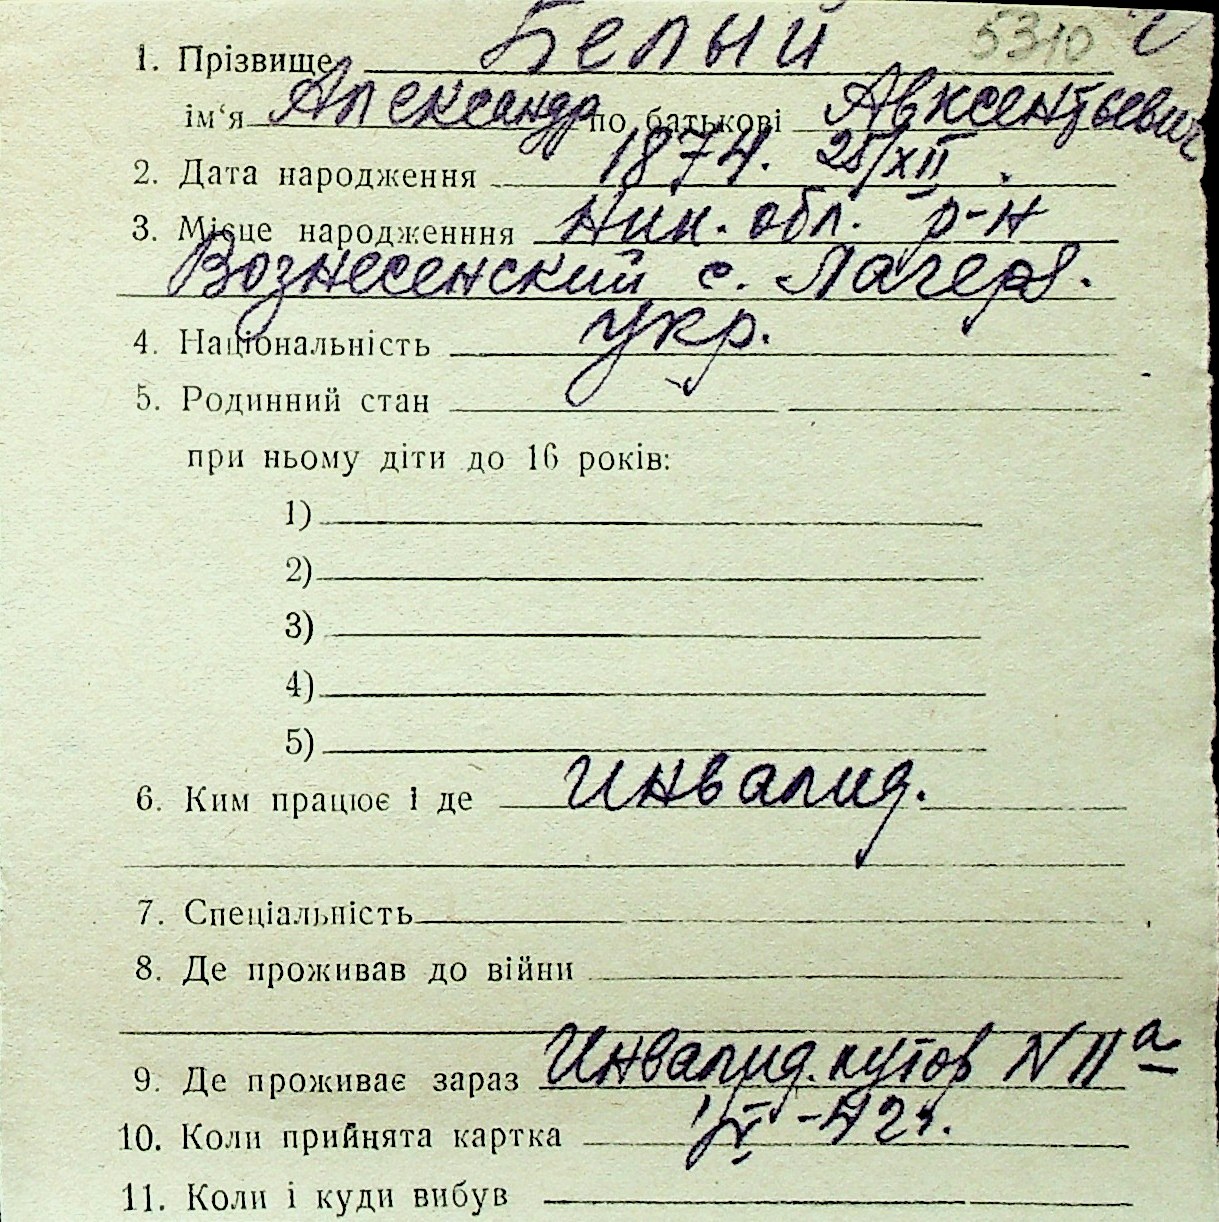 1. Прізвище Белый 5310
ім‘я Александр по батькові Авксентьевич
2. Дата народження 1874. 25/XII.
3. Місце народженння Ник. обл. р-н
Вознесенский с. Лагеря.
4. Національність укр.
5. Родинний стан
при ньому діти до 16 років:
1)
2)
3)
4)
5)
6. Ким працює і де Инвалид.
7. Спеціальність
8. Де проживав до війни
9. Де проживає зараз Инвалид. хутор N 11а
10. Коли прийнята картка 1/V-42г.
11. Коли і куди вибув